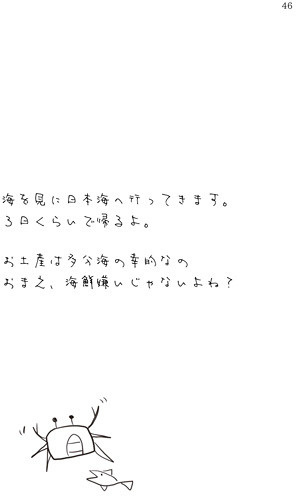 46
海を見に日本海へ行ってきます。
3日くらいで帰るよ。
お土産は多分海の幸的なの
おまえ、海鮮嫌いじゃないよね?